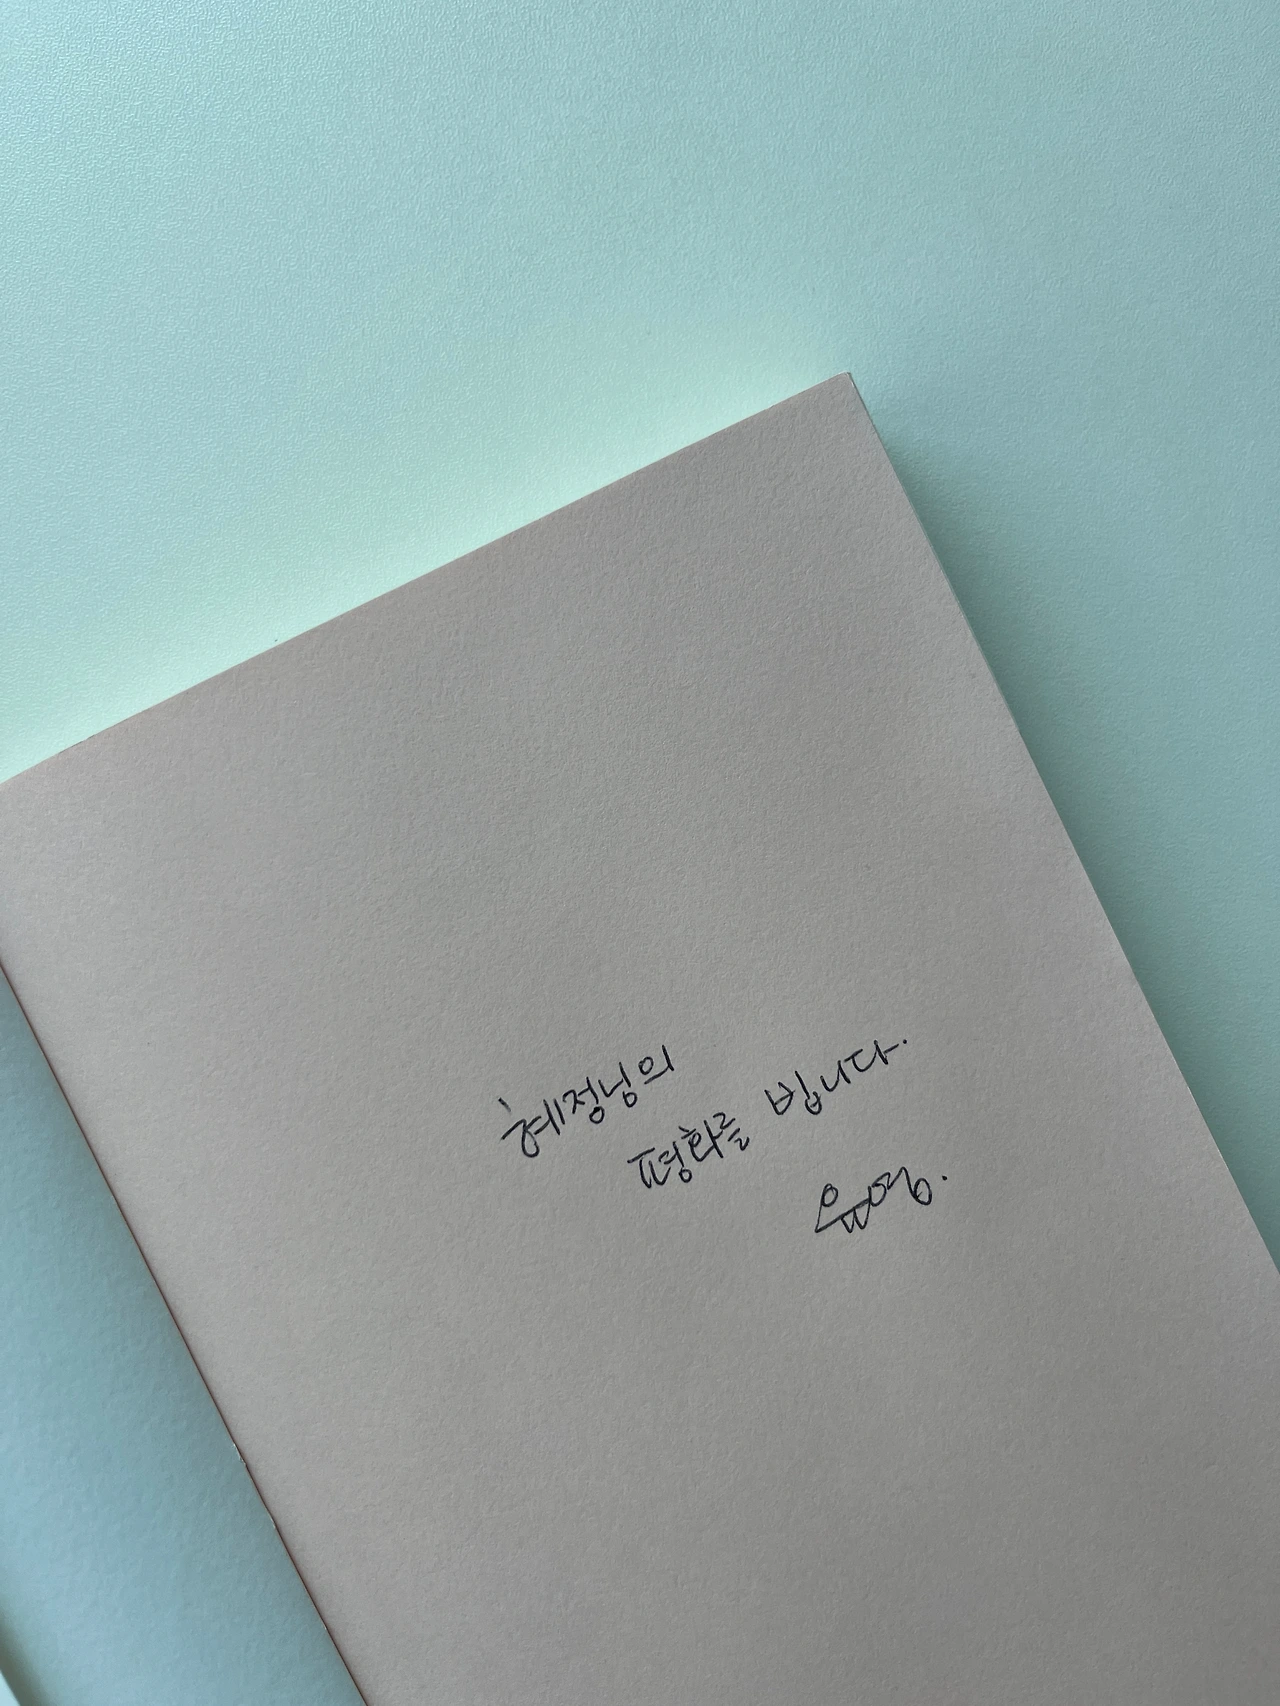 혜정님의
평화를 빕니다.